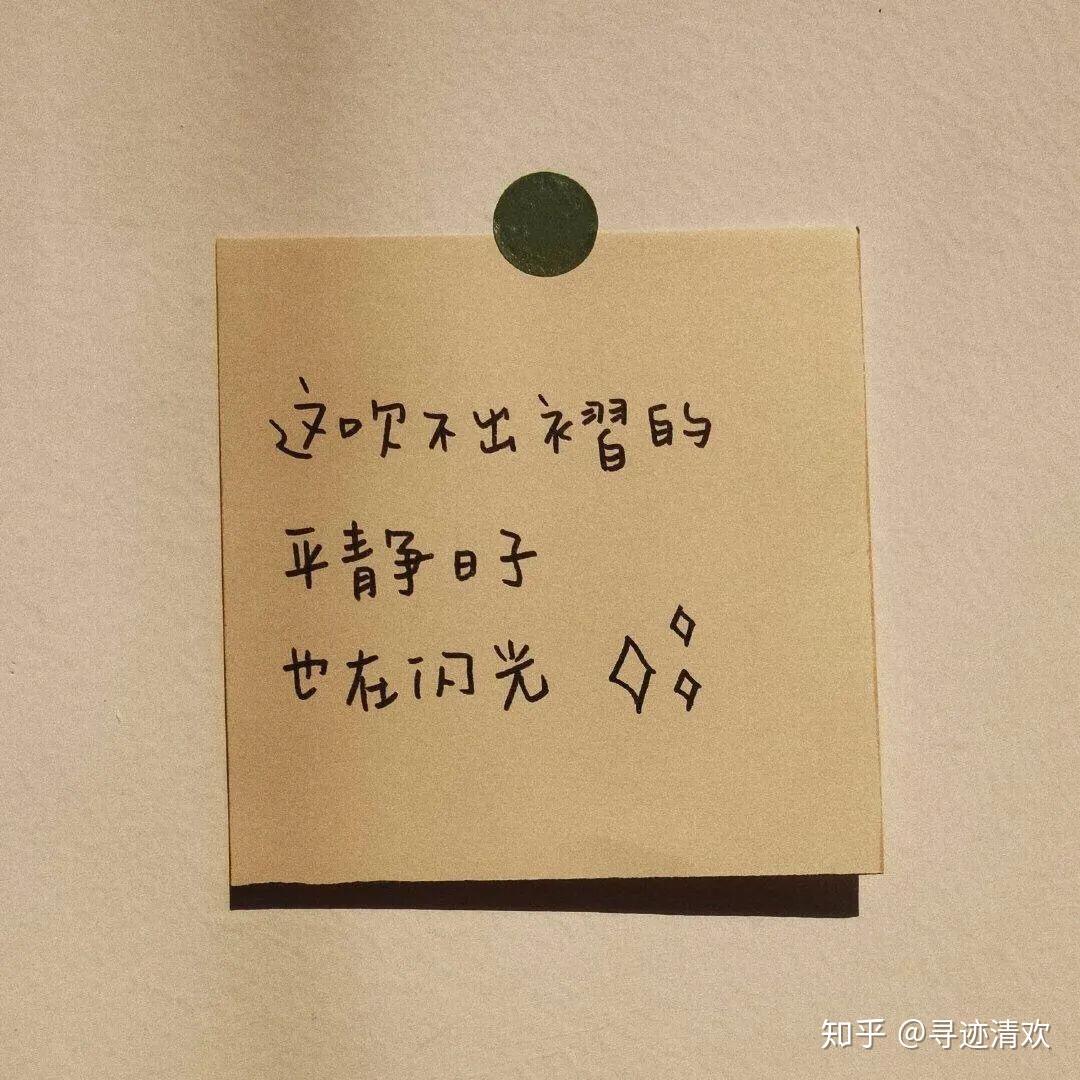 这吹不出褶的
平静日子
也在闪光
知乎 @寻迹清欢